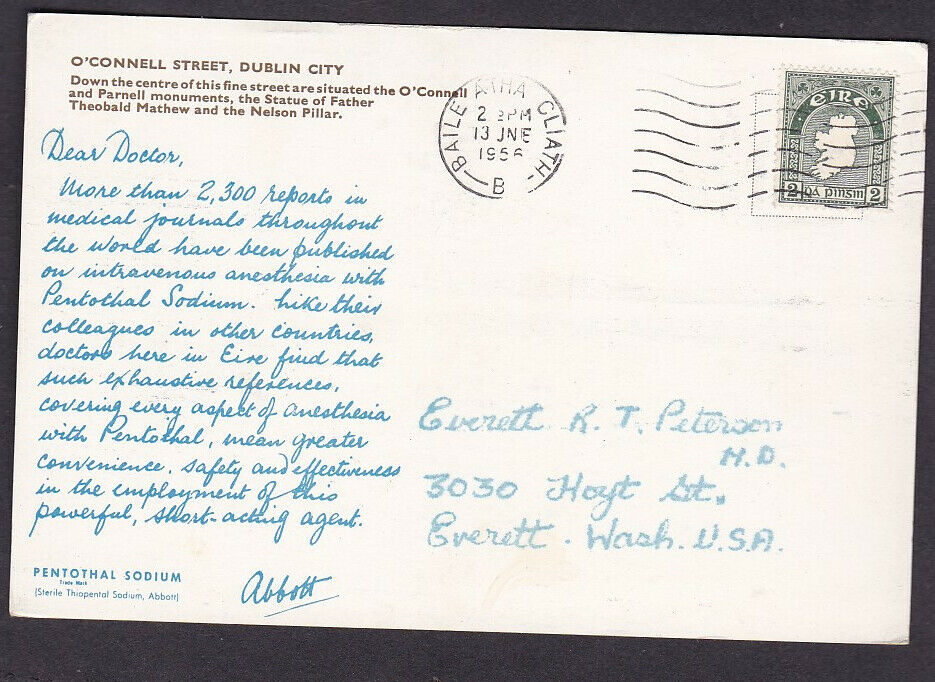 O'CONNELL STREET, DUBLIN CITY
Down the centre of this fine street are situated the O'Connell
and Parnell monuments, the Statue of Father
Theobald Mathew and the Nelson Pillar.
BAILE ATHA CLIATH
2 PM
13 JNE
1956
B
EIRE
2 DÁ PINSIN 2
Dear Doctor,
More than 2,300 reports in
medical journals throughout
the world have been published
on intravenous anesthesia with
Pentothal Sodium. Like their
colleagues in other countries,
doctors here in Eire find that
such exhaustive references,
covering every aspect of anesthesia
with Pentothal, mean greater
convenience, safety and effectiveness
in the employment of this
powerful, short-acting agent.
Abbott
PENTOTHAL SODIUM
Trade Mark
(Sterile Thiopental Sodium, Abbott)
Everett R. T. Peterson
M.D.
3030 Hoyt St,
Everett. Wash. U.S.A.